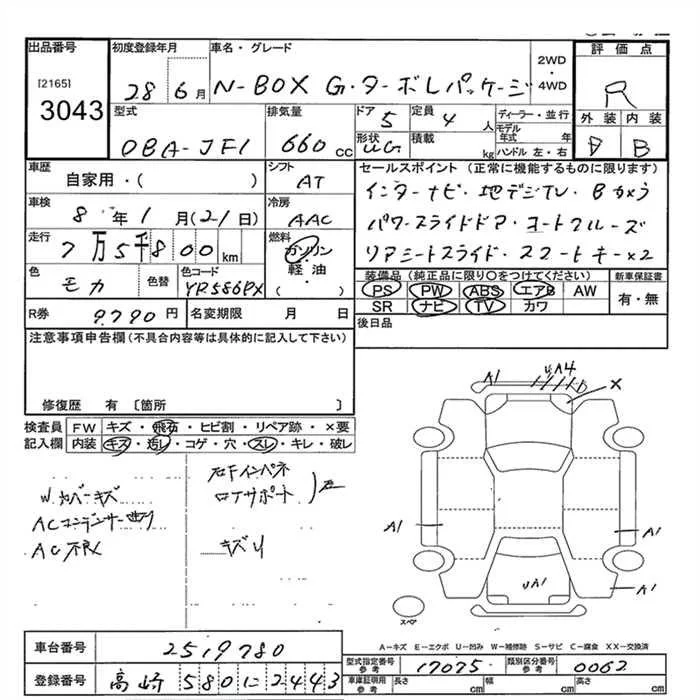 出品番号
[2165]
3043
初度登録年月
28 6月
車名・グレード
N-BOX G・ターボLパッケージ
2WD
・
4WD
評価点
R
外装 内装
B
型式
DBA-JF1
排気量
660 cc
ドア
5
定員
4 人
ディーラー・並行
モデル年式 年
形状
UG
積載
kg
ハンドル 左・右
車歴
自家用・( )
シフト
AT
セールスポイント (正常に機能するものに限ります)
インターナビ・地デジTV・Bカメラ
パワースライドドア・コートクルーズ
リアシートスライド・スマートキー×2
車検
8年1月(21日)
冷房
AAC
走行
7万5千800km
燃料
ガソリン
・
軽・油
( )
色
モカ
色替
色コード
YR586PX
装備品(純正品に限り○をつけてください)
PS PW ABS エアB AW
SR ナビ TV カワ
新車保証書
有・無
R券 9790円
名変期限 月 日
後日品
注意事項申告欄(不具合内容等は具体的に記入して下さい)
修復歴 有 〔箇所 〕
検査員記入欄
FW キズ・飛石・ヒビ割・リペア跡・×要
内装 キズ・汚レ・コゲ・穴・スレ・キレ・破レ
W.カバーキズ
ACコンデンサー曲り
AC不良
右Fインパネ
ロアサポート
キズU
A1
UA4
X
A1
A1
A1
UA1
スペア
A－キズ E－エクボ U－凹み W－補修跡 S－サビ C－腐食 XX－交換済
車台番号
2519780
登録番号
高崎 580に2443
型式指定番号
参考
17075
類別区分番号
参考
0062
車庫証明用
参考
長さ cm
幅 cm
高さ cm